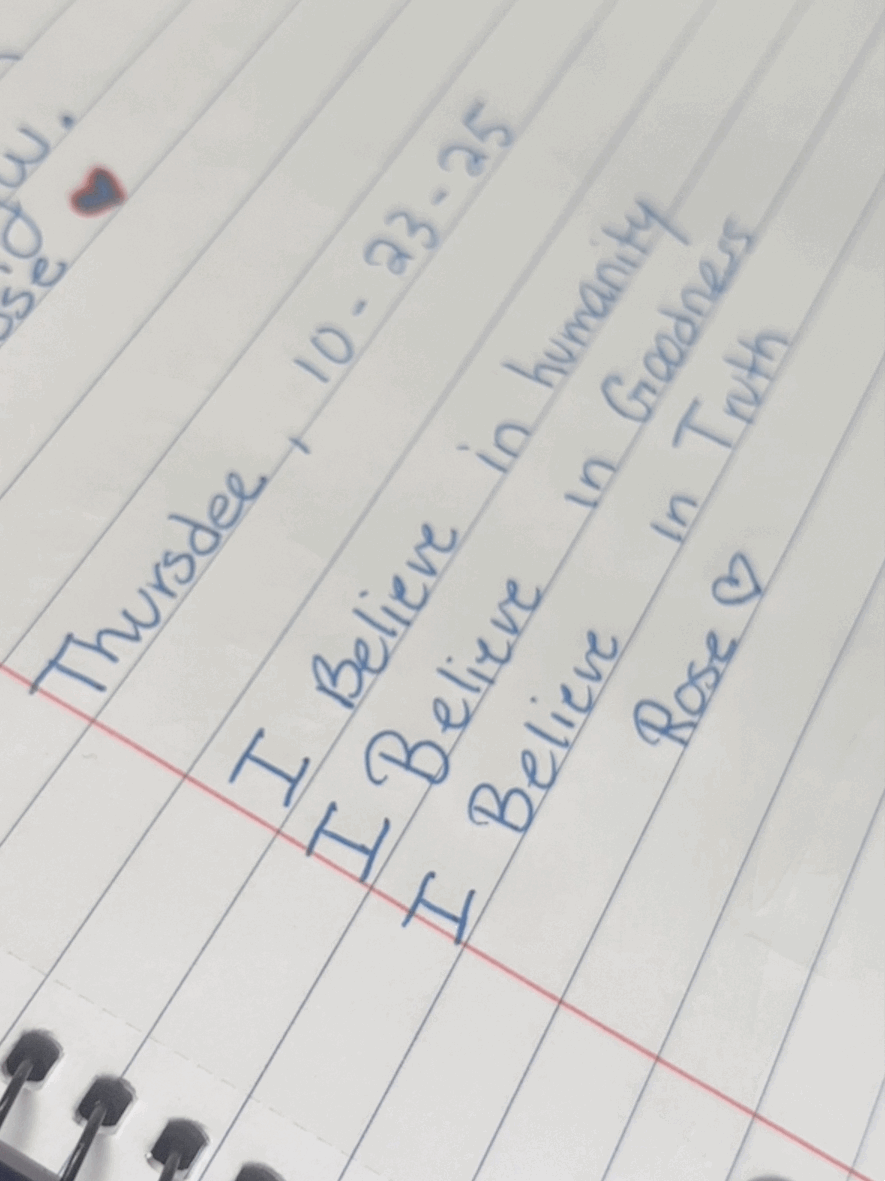 Thursdee, 10-23-25
I Believe in humanity
I Believe in Goodness
I Believe in Truth
Rose ♡